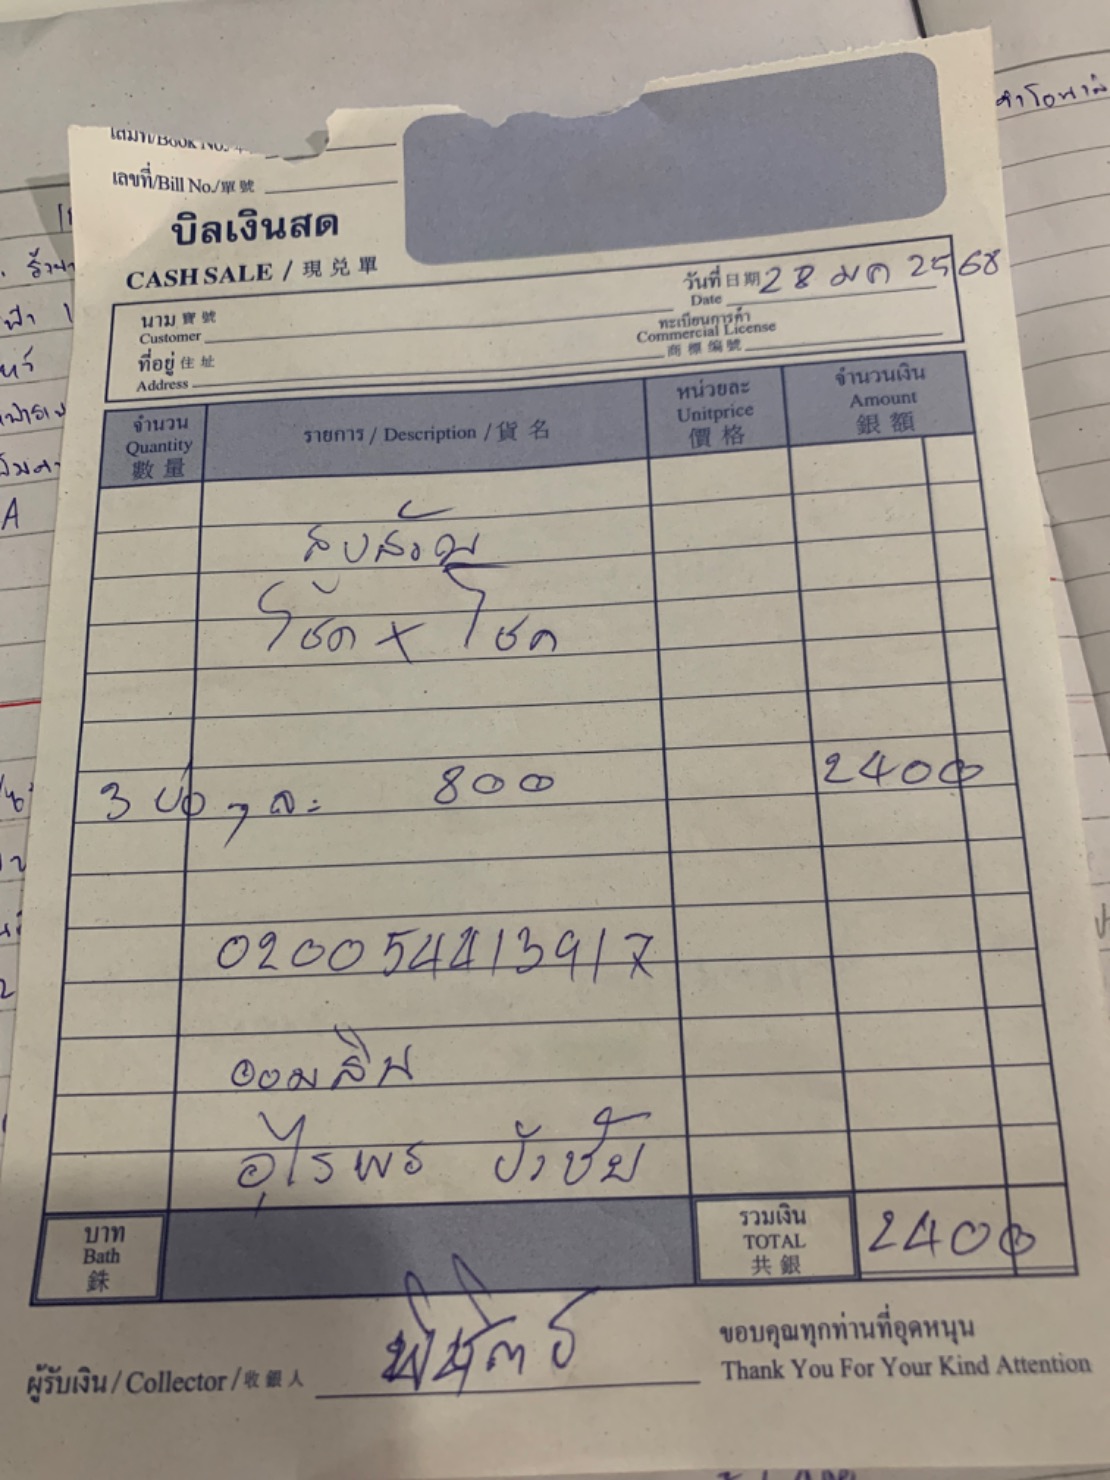 เล่มที่/Book No.
เลขที่/Bill No./單號
บิลเงินสด
CASH SALE / 現兑單
วันที่ 日期 28 มค 2568
Date
นาม 寶號
Customer
ทะเบียนการค้า
Commercial License
商標编號
ที่อยู่ 住址
Address
จำนวน
Quantity
數量
รายการ / Description / 貨名
หน่วยละ
Unitprice
價格
จำนวนเงิน
Amount
銀額
สูบส้วม
โชค x โชค
3 บ่อ ๆ ละ 800 2400
020054413917
ออมสิน
อุไรพร
บาท
Bath
銖
รวมเงิน
TOTAL
共銀
2400
ผู้รับเงิน / Collector / 收銀人
ขอบคุณทุกท่านที่อุดหนุน
Thank You For Your Kind Attention